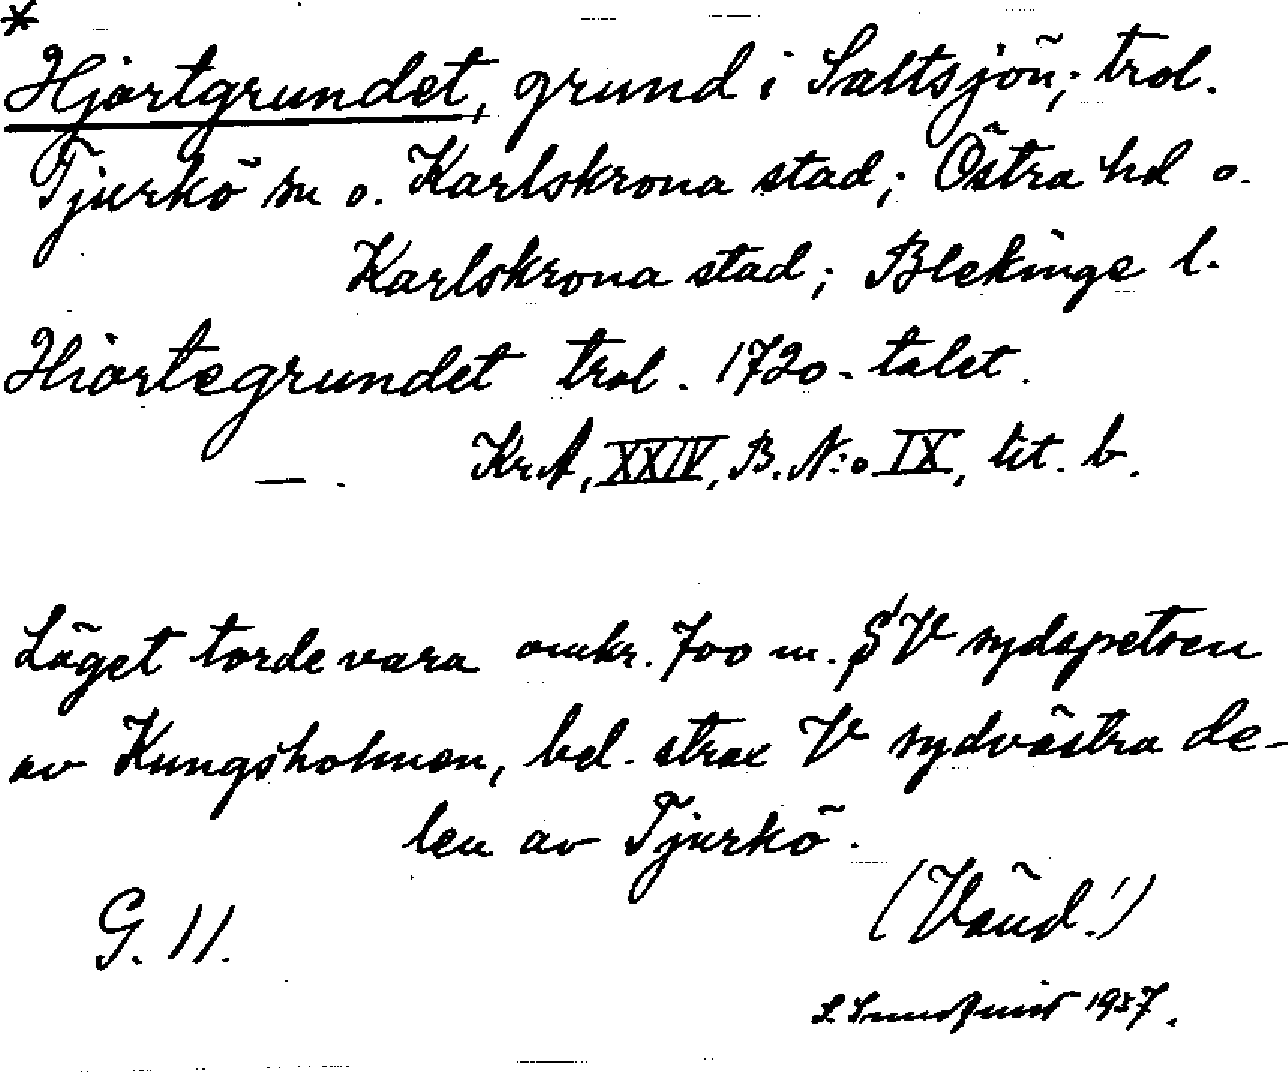 *
Hjortgrundet, grund i Saltsjön; trol.
Tjurkö sn o. Karlskrona stad; Östra hd o.
Karlskrona stad; Blekinge l.
Hiortegrundet trol. 1720-talet.
— . Kr.A, XXIV, B. N:o IX, lit. b.
Läget torde vara omkr. 700 m. V sydspetsen
av Kungsholmen, bel. strax V sydvästra de-
len av Tjurkö.
G. 11. (Vänd!)
S. Sundquist 1937.